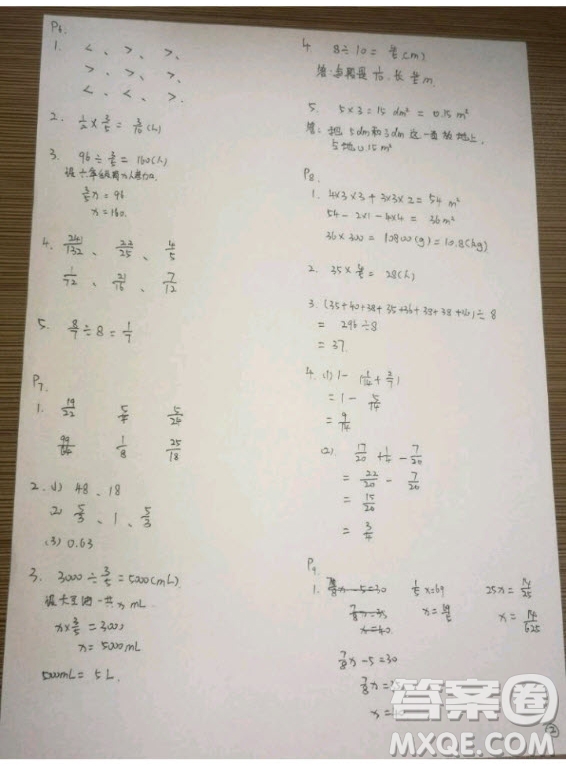 P6.
1. <、>、>、
>、>、>、
<、<、>.
2. 1/2 × 3/5 = 3/10 (h)
3. 96 ÷ 3/5 = 160 (人)
3/5 x = 96
x = 160.
4. 241/132、23/25、4/5
1/72、21/16、7/12
5. 8/7 ÷ 8 = 1/7
P7.
1. 19/22 5/4 5/24
1/8 25/18
2. (1) 48、18
(2) 5/3、1、5/3
(3) 0.63
3. 3000 ÷ 3/5 = 5000 (mL)
设大豆油一共x mL.
x × 3/5 = 3000
x = 5000mL
5000mL = 5L.
4. 8 ÷ 10 = 4/5 (m)
答:每段是 1/10, 长 4/5 m.
5. 5×3 = 15 dm² = 0.15 m²
答:把 5dm 和 3dm 这一面放地上,
占地 0.15 m²
P8.
1. 4×3×3 + 3×3×2 = 54 m²
54 - 2×1 - 4×4 = 36 m²
36×300 = 10800 (g) = 10.8 (kg)
2. 35 × 4/5 = 28 (人)
= 296 ÷ 8
= 37.
4. (1) 1 - (1/14 + 2/7)
= 1 - 5/14
= 9/14
(2) 17/20 + 1/4 - 7/20
= 22/20 - 7/20
= 15/20
= 3/4
P9
1. 7/8 x - 5 = 30 1/5 x = 69 25x = 14/25
7/8 x = 35 x = 14/625
x = 40
7/8 x - 5 = 30
7/8 x = 35
x = 40
答案圈
MXQE.COM